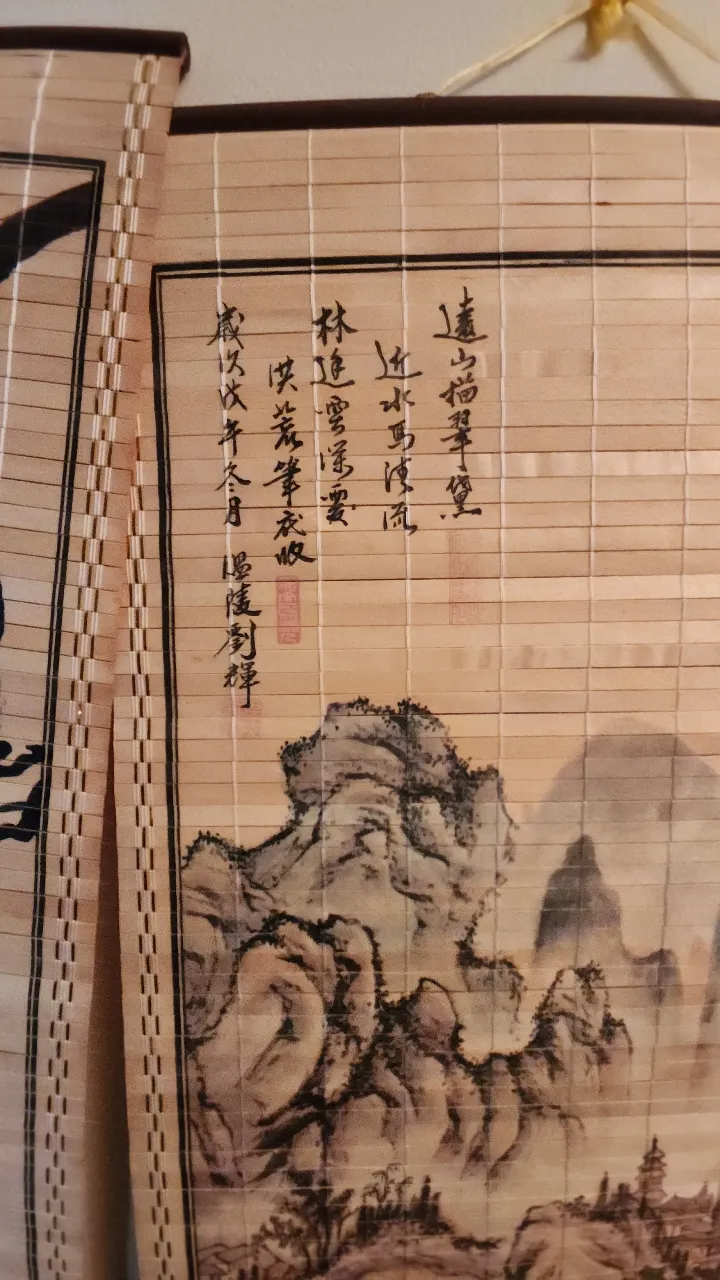 遠山描翠黛
近水馬清流
林逢雲深
洪荒筆底收
歲次戊午冬月 温陵劉輝